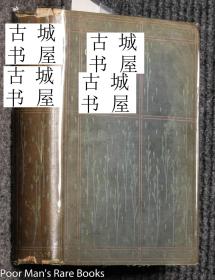 古城
书屋
古城
书屋
古城
书屋
古城
书屋
Poor Man's Rare Books